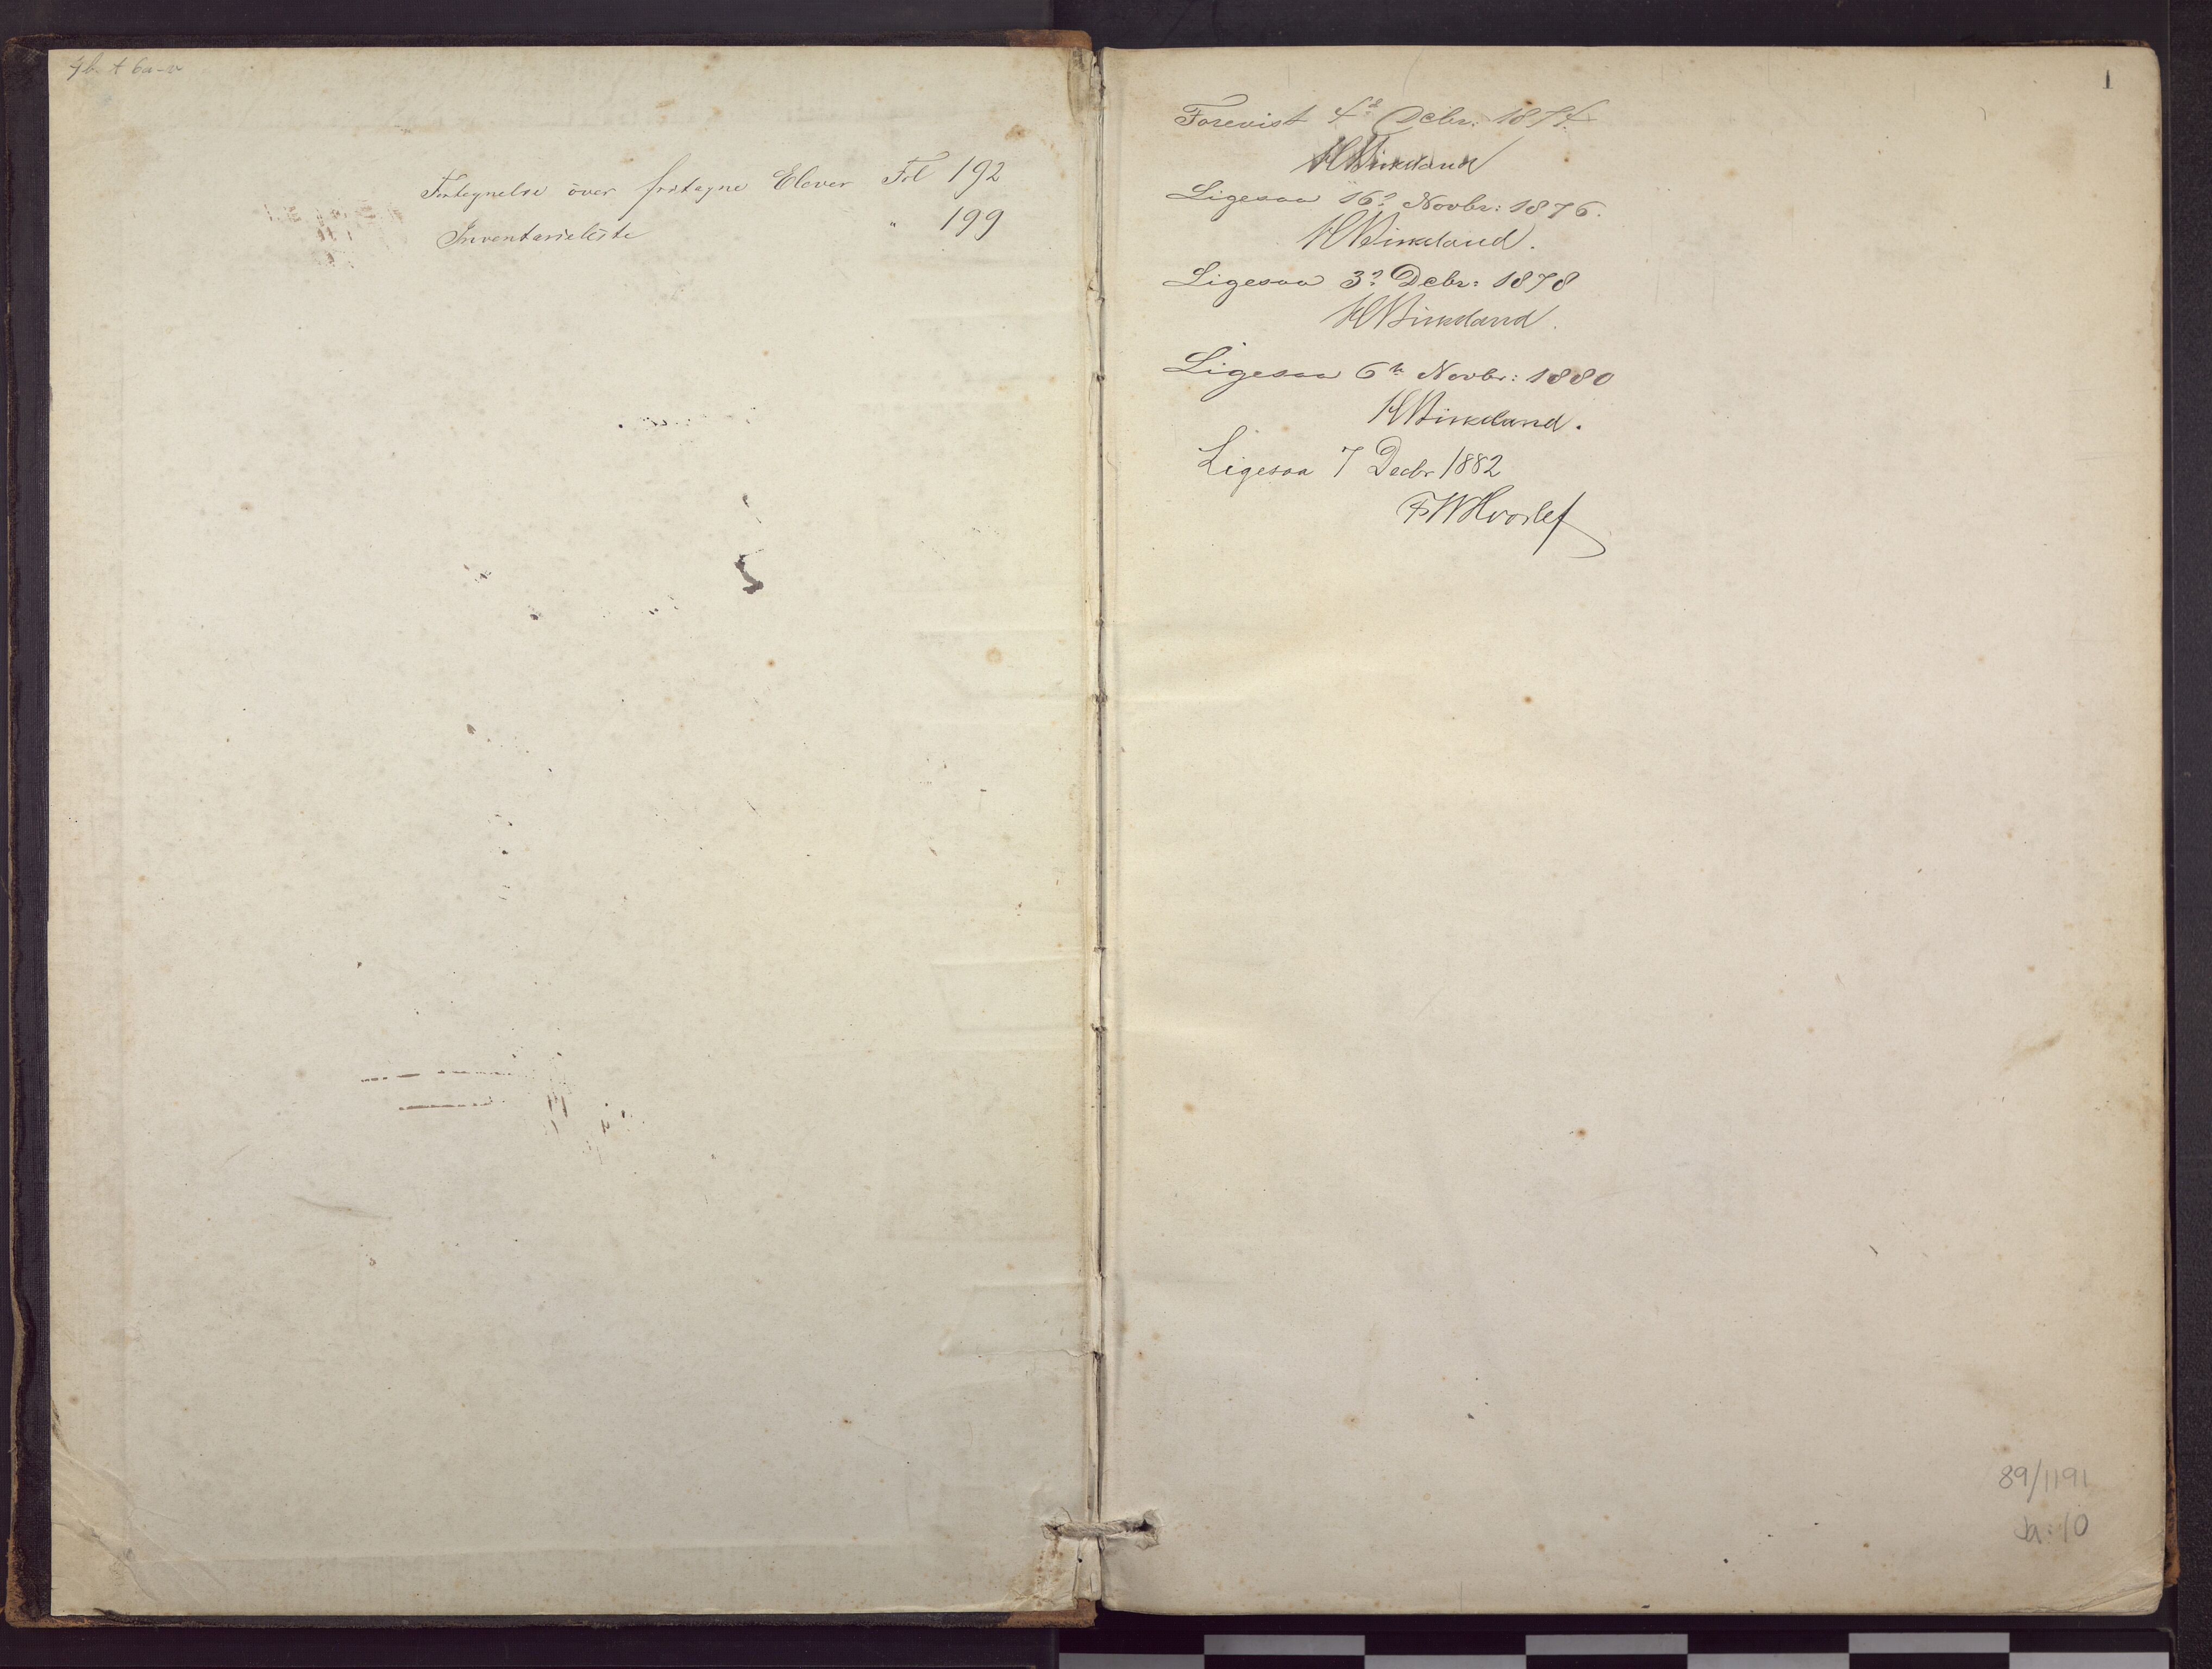 Fortegnelse over fritagne Elever Fol 192
Inventarieliste " 199
1
Forevist 4de Decbr: 1874
HBirkeland
Ligesaa 16? Novbr: 1876.
HBirkeland.
Ligesaa 3? Decbr: 1878
HBirkeland.
Ligesaa 6te Novbr: 1880
HBirkeland.
Ligesaa 7 Decbr 1882
FWHvoslef
89/1191
Ja: 10